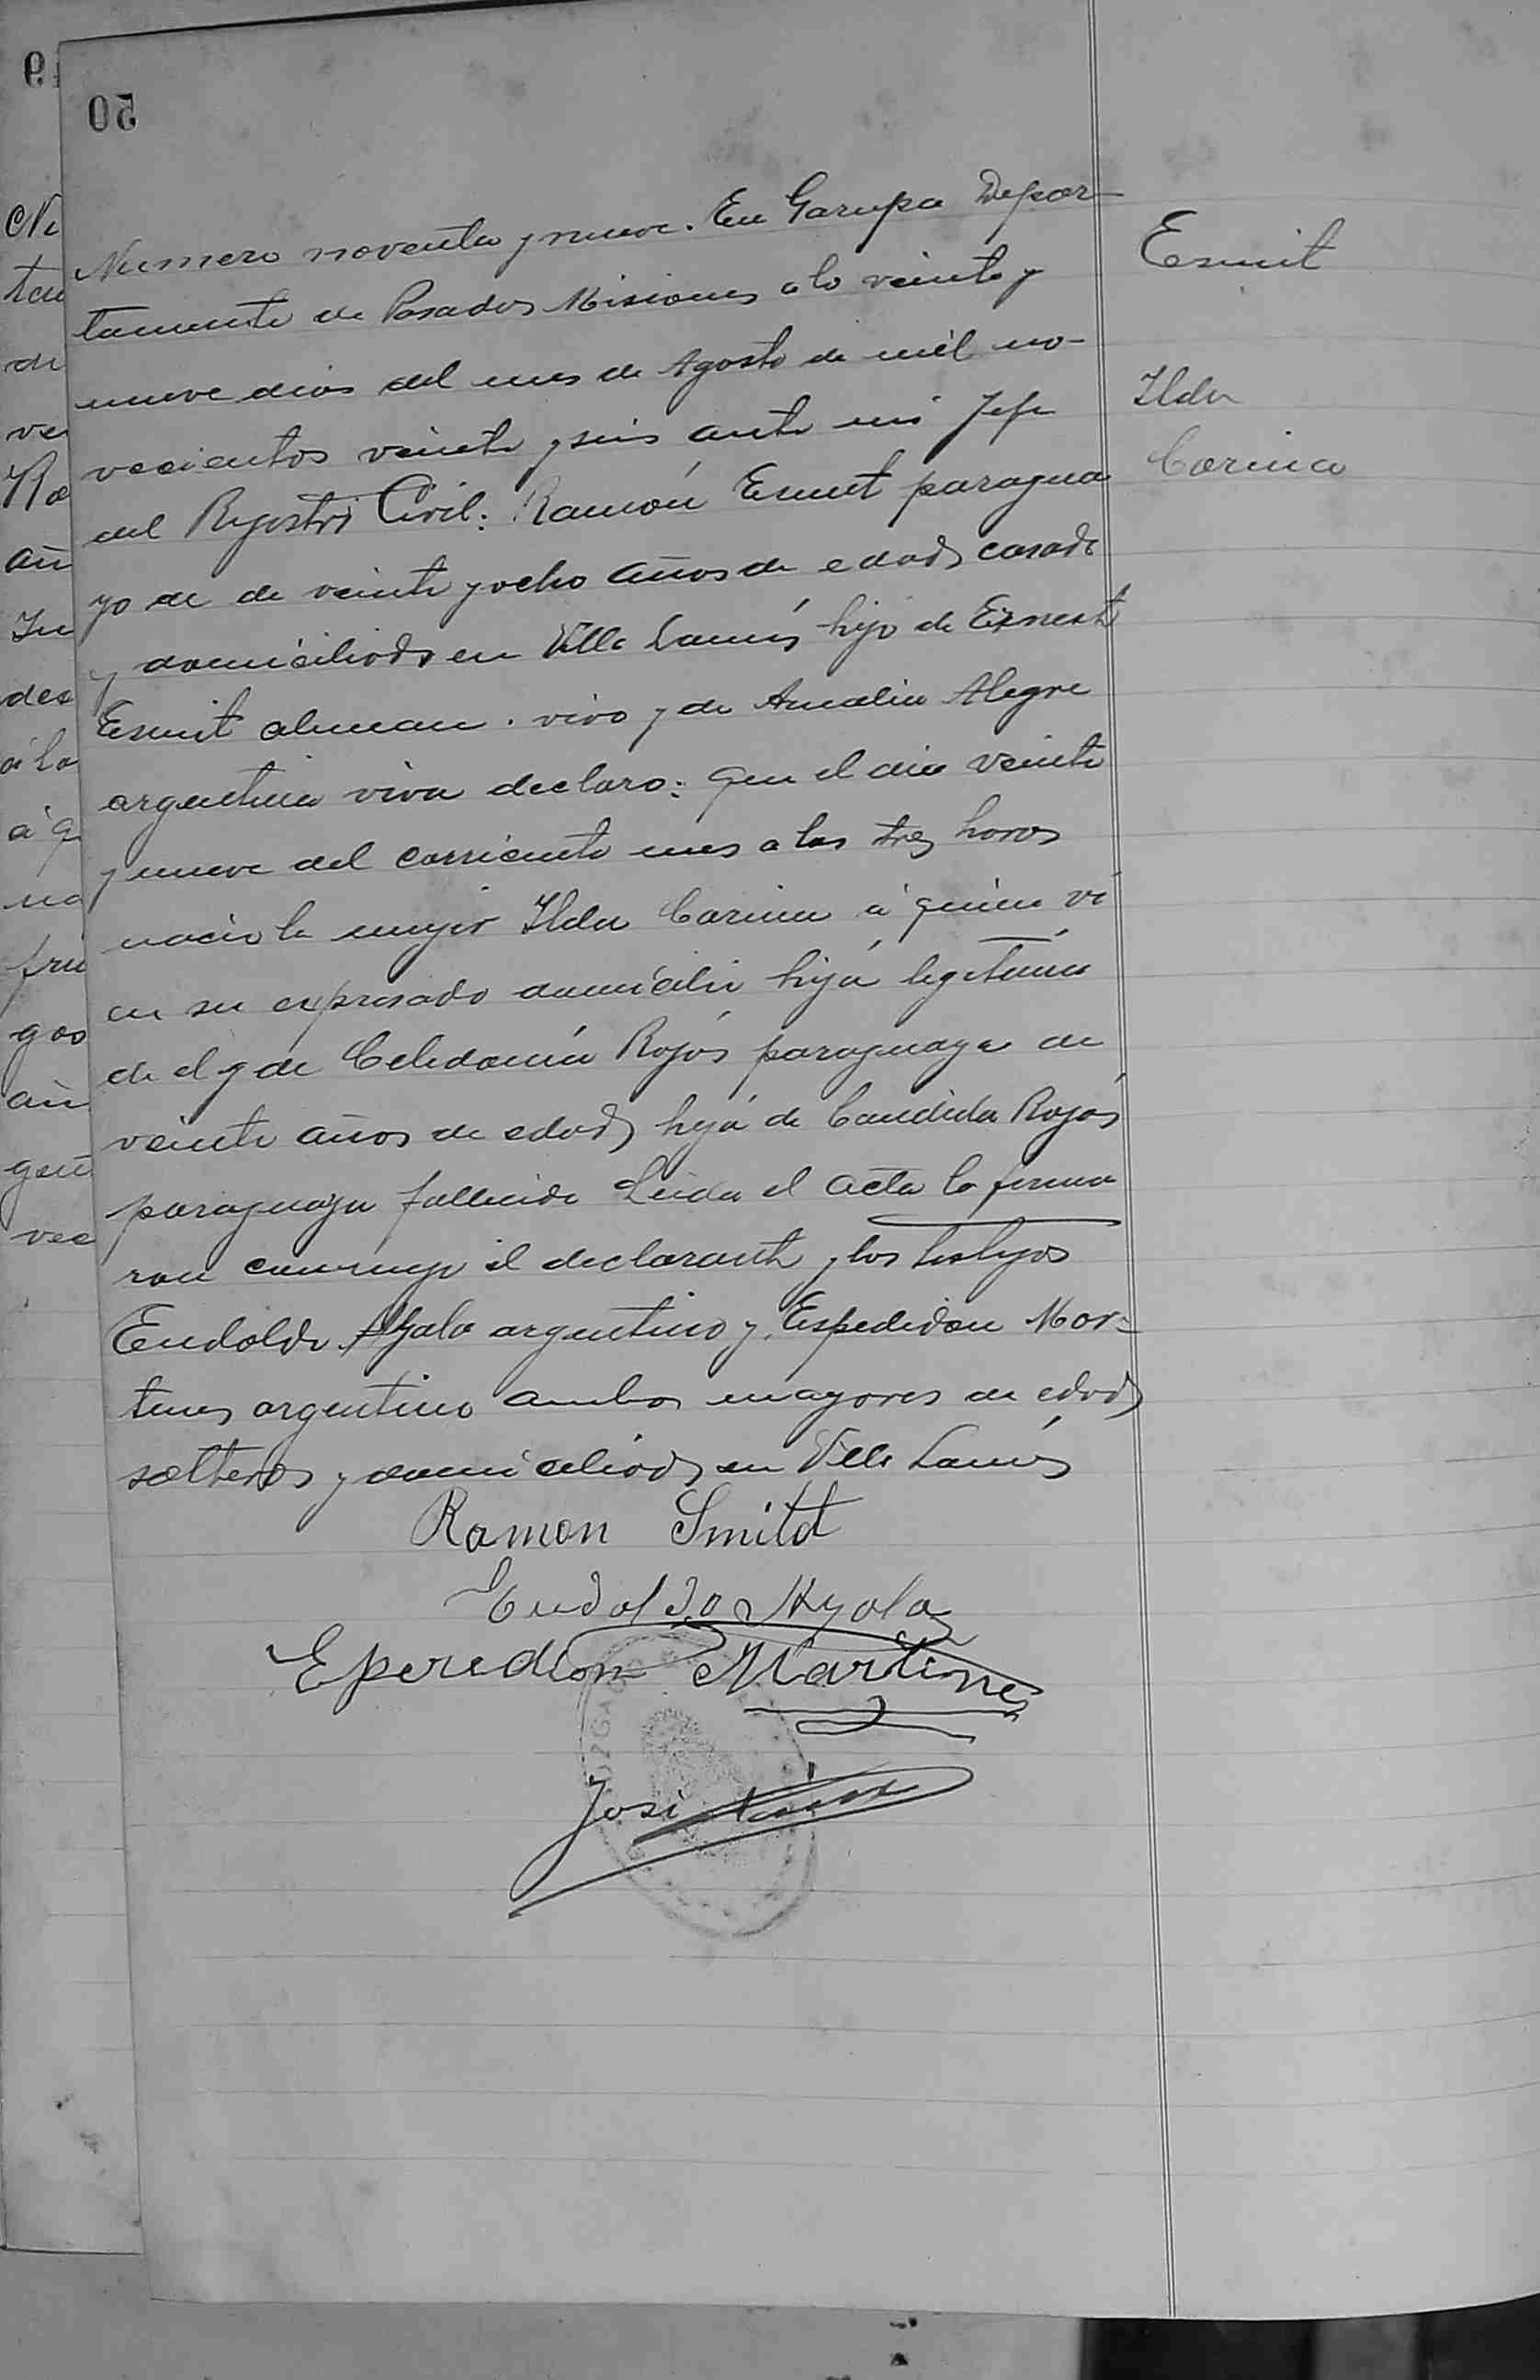 50
Numero noventa y nueve. En Garupa Depar-
tamento de Posadas Misiones a lo veinte y
nueve dias del mes de Agosto de mil no-
vecientos veinte y seis ante mi Jefe
del Registro Civil: Ramón Esmit paragua
yo de de veinte y ocho años de edad casado
y domiciliado en Villa Lanús hijo de Ernesto
Esmit aleman. vivo y de Amalia Alegre
argentina viva declaro: que el dia veinte
y nueve del corriente mes a las tres horas
nacio la mujer Ilda Carina a quien vi
en su expresado domicilio hija legitima
de el y de Celedonia Rojas paraguaya de
veinte años de edad hija de Candida Rojas
paraguaya fallecida Leida el acta la firma
ron conmigo el declarante y los testigos
Eudoldo Ayala argentino y Espedidon Mar-
tines argentino ambos mayores de edad
solteros y domiciliados en Villa Lanús
Ramon Smitd
Eudoldo Ayala
Eperedion Martines
José
Esmit
Ilda
Carina